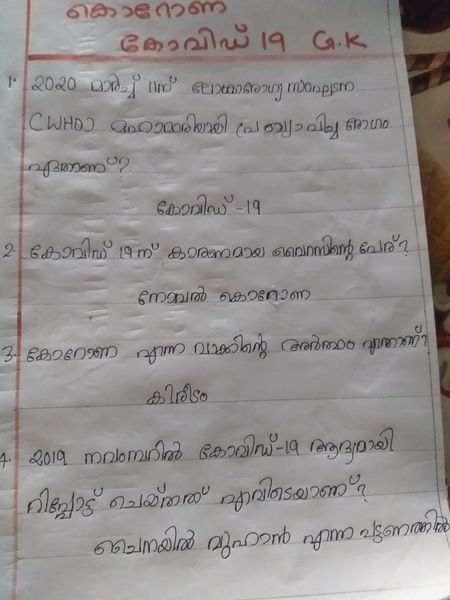 കൊറോണ
കോവിഡ് 19 G.K
1. 2020 മാർച്ച് 11ന് ലോകാരോഗ്യ സംഘടന
(WHO) മഹാമാരിയായി പ്രഖ്യാപിച്ച രോഗം
ഏതാണ്?
കോവിഡ് -19
2. കോവിഡ് 19ന് കാരണമായ വൈറസിന്റെ പേര്?
നോവൽ കൊറോണ
3. കോറോണ എന്ന വാക്കിന്റെ അർത്ഥം എന്താണ്?
കിരീടം
4. 2019 നവംമ്പറിൽ കോവിഡ്-19 ആദ്യമായി
റിപ്പോട്ട് ചെയ്തത് എവിടെയാണ്?
ചൈനയിൽ വുഹാൻ എന്ന പട്ടണത്തിൽ